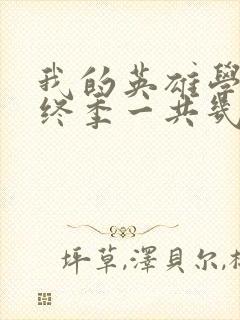 我的英雄學
终季一共幾
坪草,澤貝尔,林